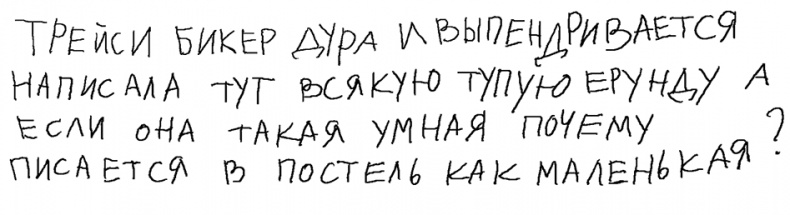 ТРЕЙСИ БИКЕР ДУРА И ВЫПЕНДРИВАЕТСЯ
НАПИСАЛА ТУТ ВСЯКУЮ ТУПУЮ ЕРУНДУ А
ЕСЛИ ОНА ТАКАЯ УМНАЯ ПОЧЕМУ
ПИСАЕТСЯ В ПОСТЕЛЬ КАК МАЛЕНЬКАЯ?